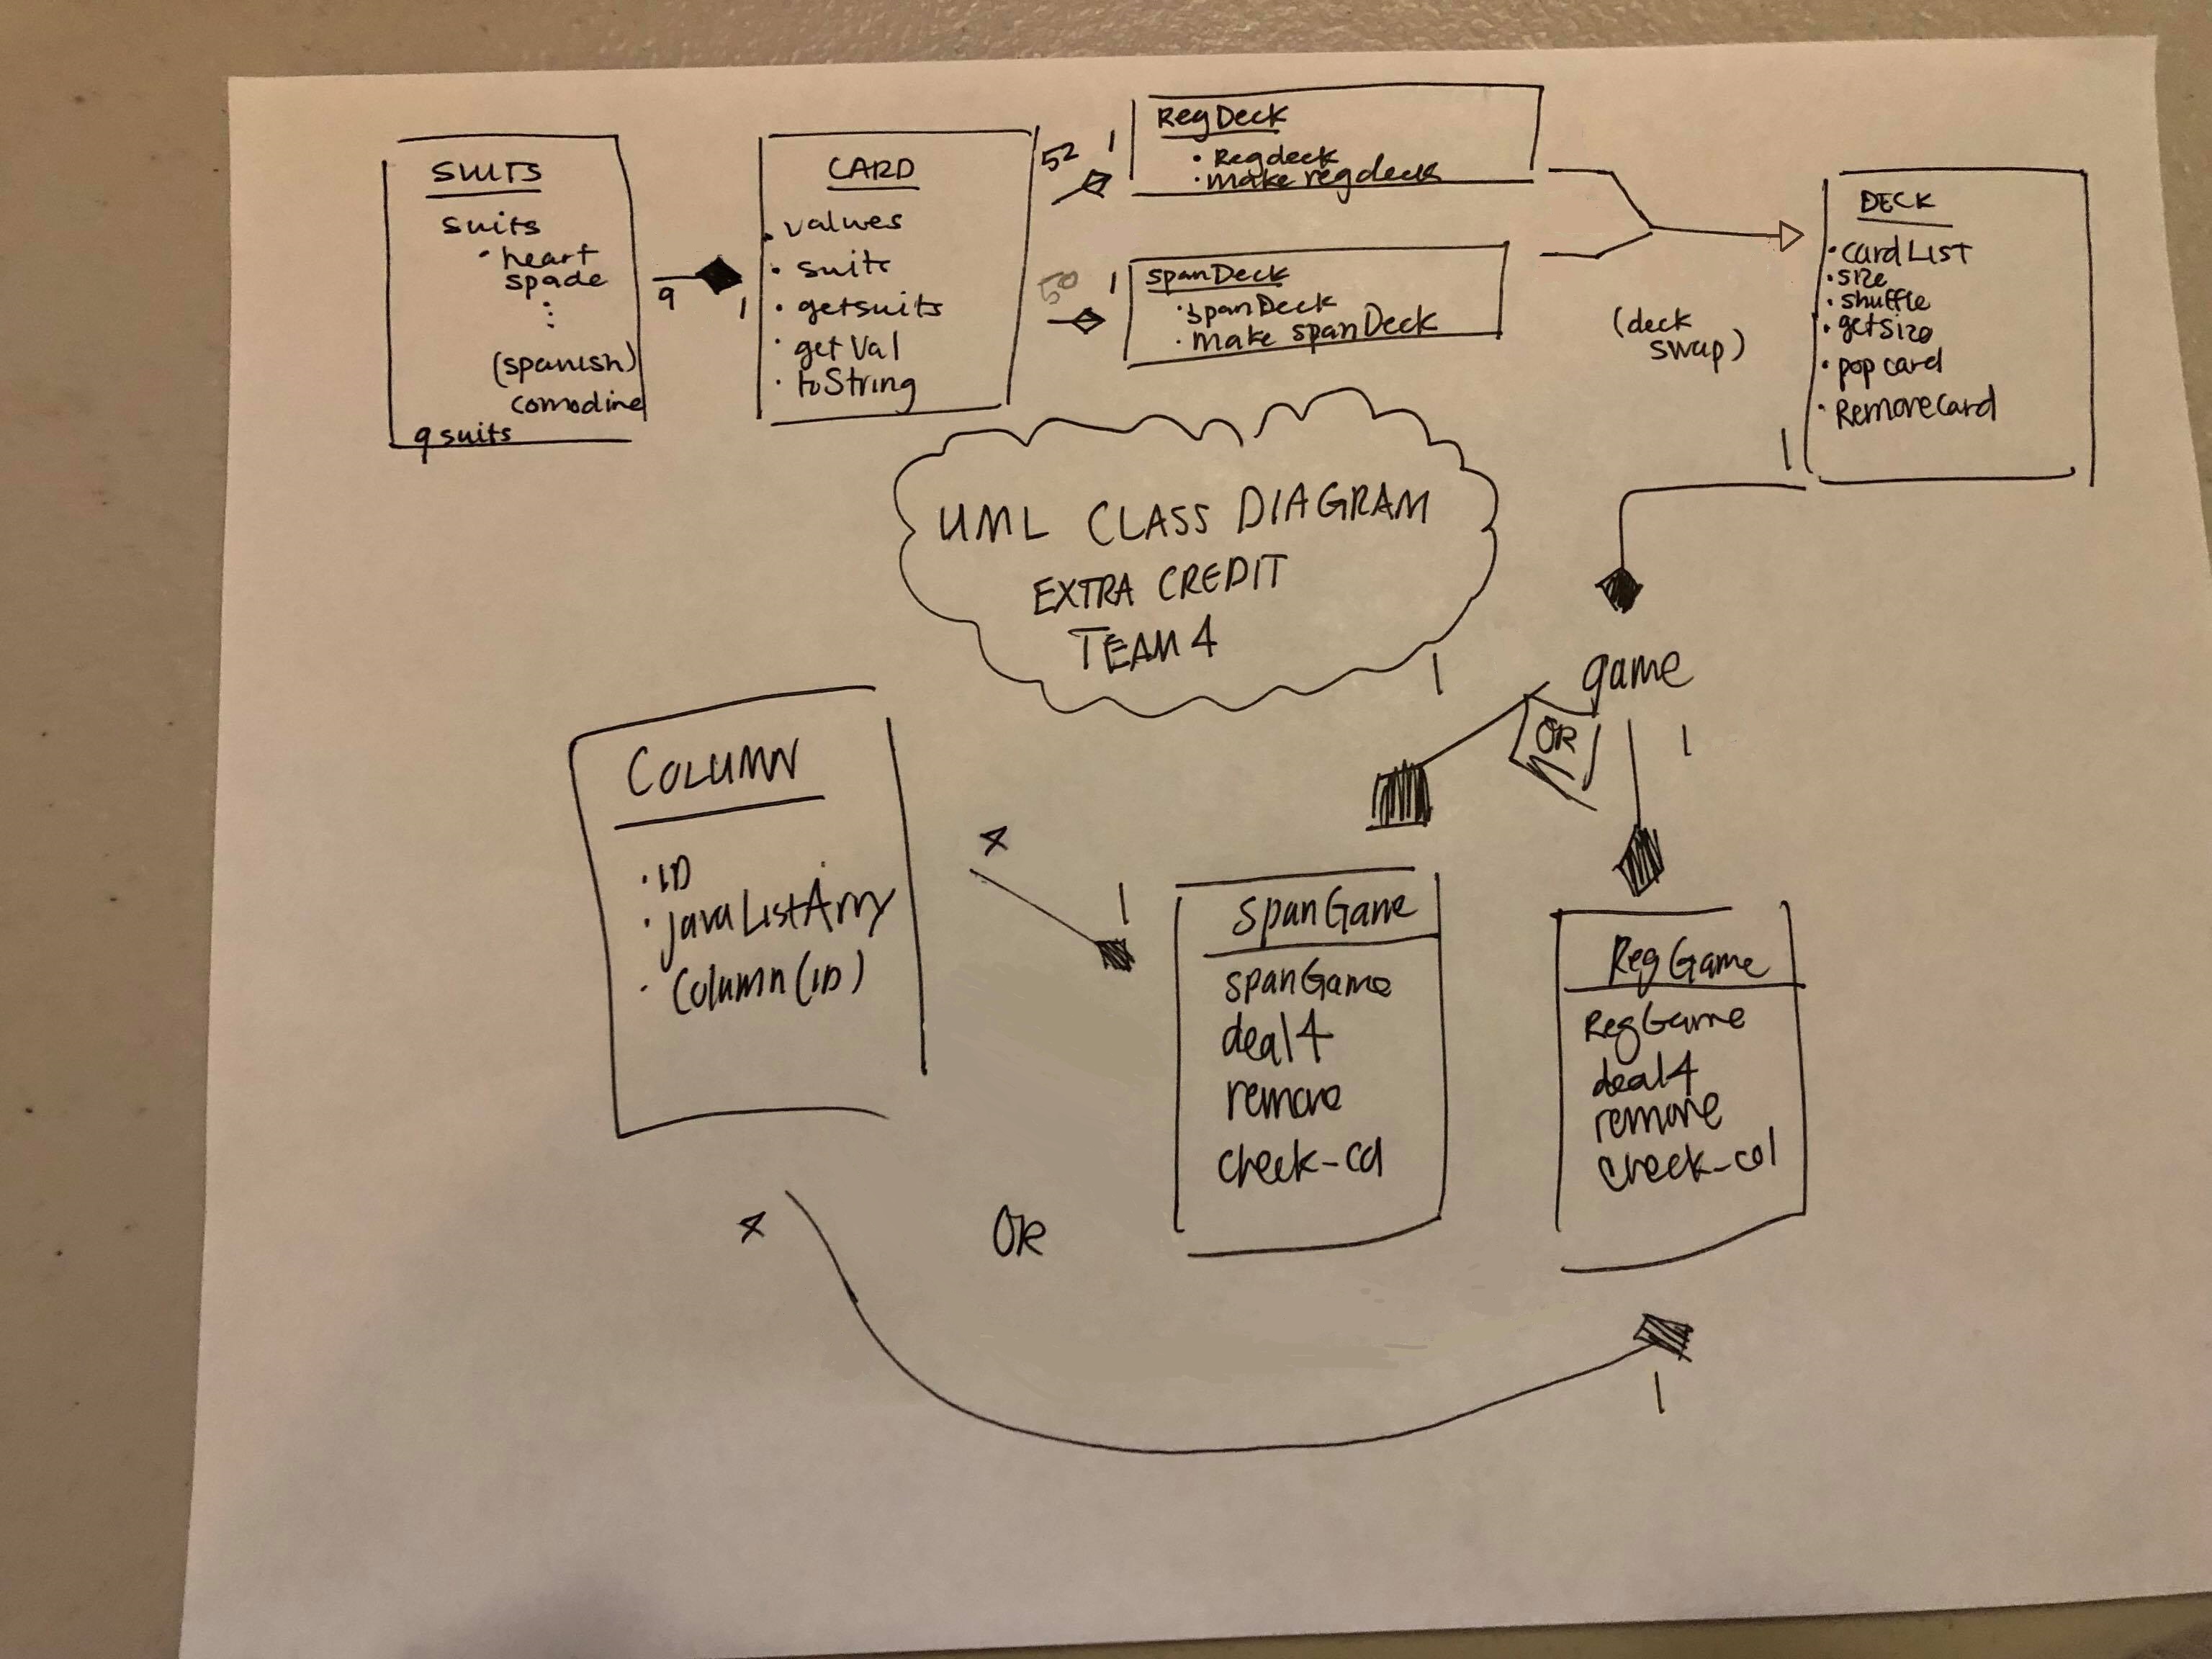 SUITS
suits
• heart
spade
(spanish)
comodine
9 suits
9
1
CARD
• values
• suits
• getsuits
• getVal
• toString
52
1
50
1
RegDeck
• Regdeck
• make regdeck
spanDeck
• spanDeck
• make spanDeck
(deck
swap)
DECK
• cardList
• size
• shuffle
• getsize
• pop card
• Removecard
1
UML CLASS DIAGRAM
EXTRA CREDIT
TEAM 4
game
1
OR
1
COLUMN
• ID
• javaListArry
• Column (ID)
4
1
spanGame
spanGame
deal4
remove
check-col
RegGame
RegGame
deal4
remove
check-col
4
OR
1